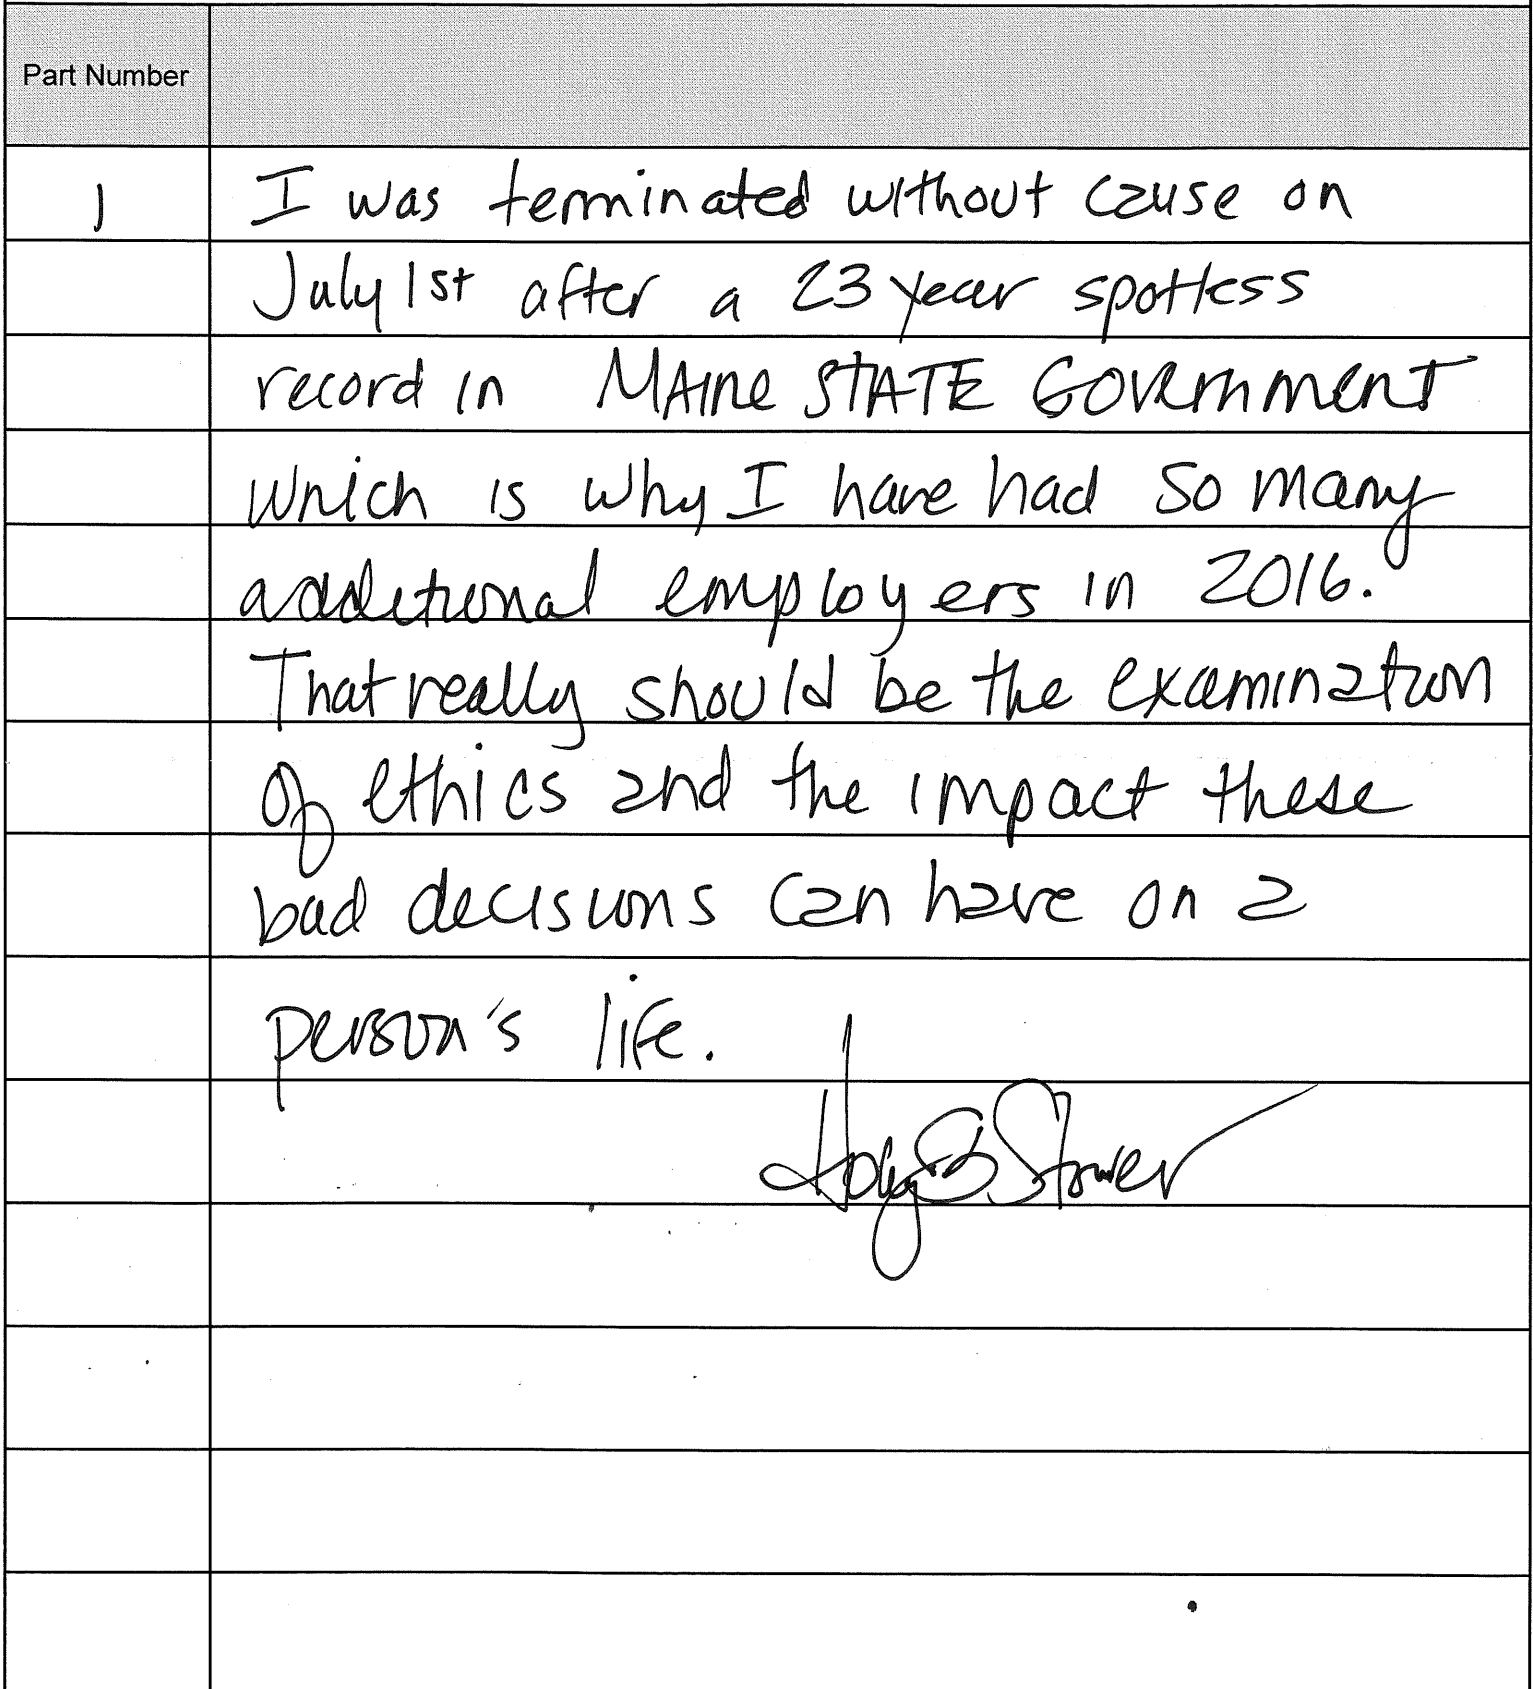 Part Number
1 I was terminated without cause on
July 1st after a 23 year spotless
record in MAINE STATE GOVERNMENT
which is why I have had so many
additional employers in 2016.
That really should be the examination
of ethics and the impact these
bad decisions can have on a
person's life.
Stover